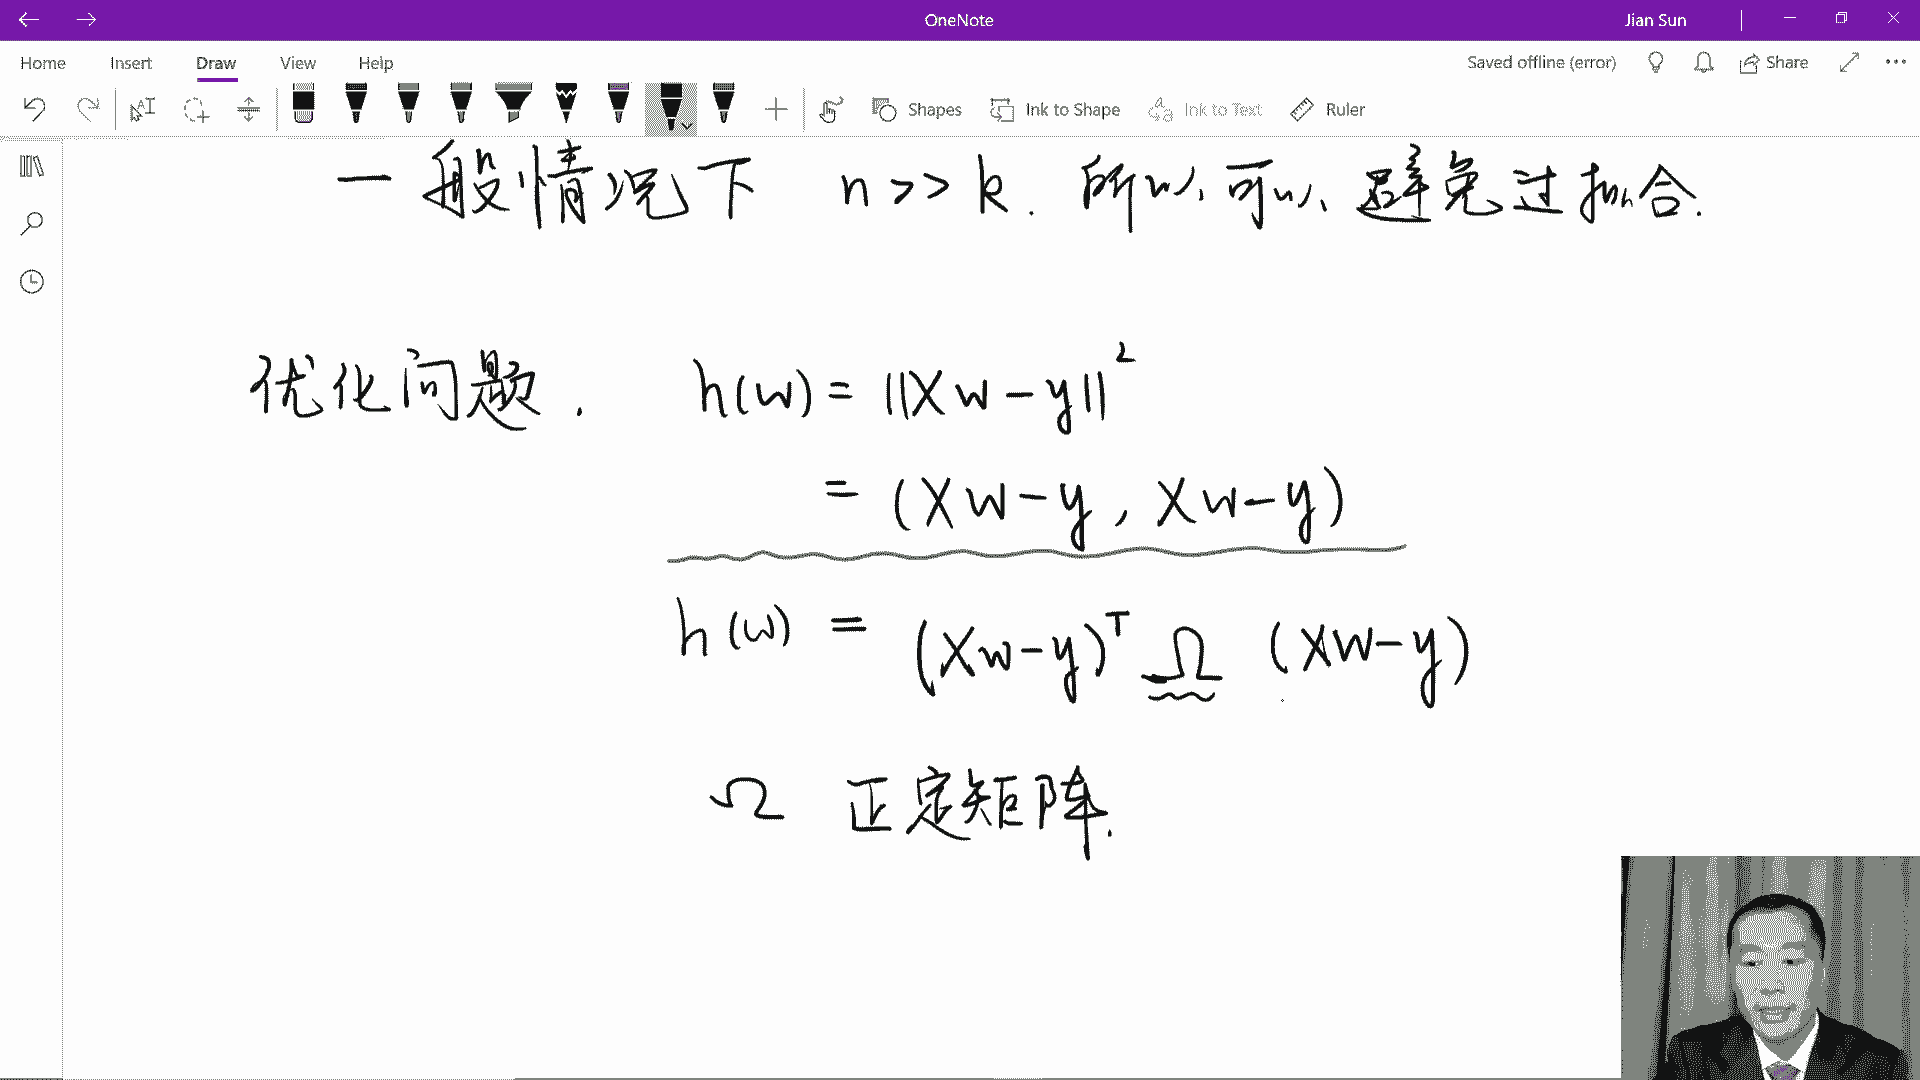 OneNote
Jian Sun
Home Insert Draw View Help
Saved offline (error) Share
Shapes Ink to Shape Ink to Text Ruler
一般情况下 n >> k. 所以, 可以, 避免过拟合.
优化问题. h(w) = ||Xw-y||²
= (Xw-y, Xw-y)
h(w) = (Xw-y)ᵀ Ω (Xw-y)
Ω 正定矩阵.